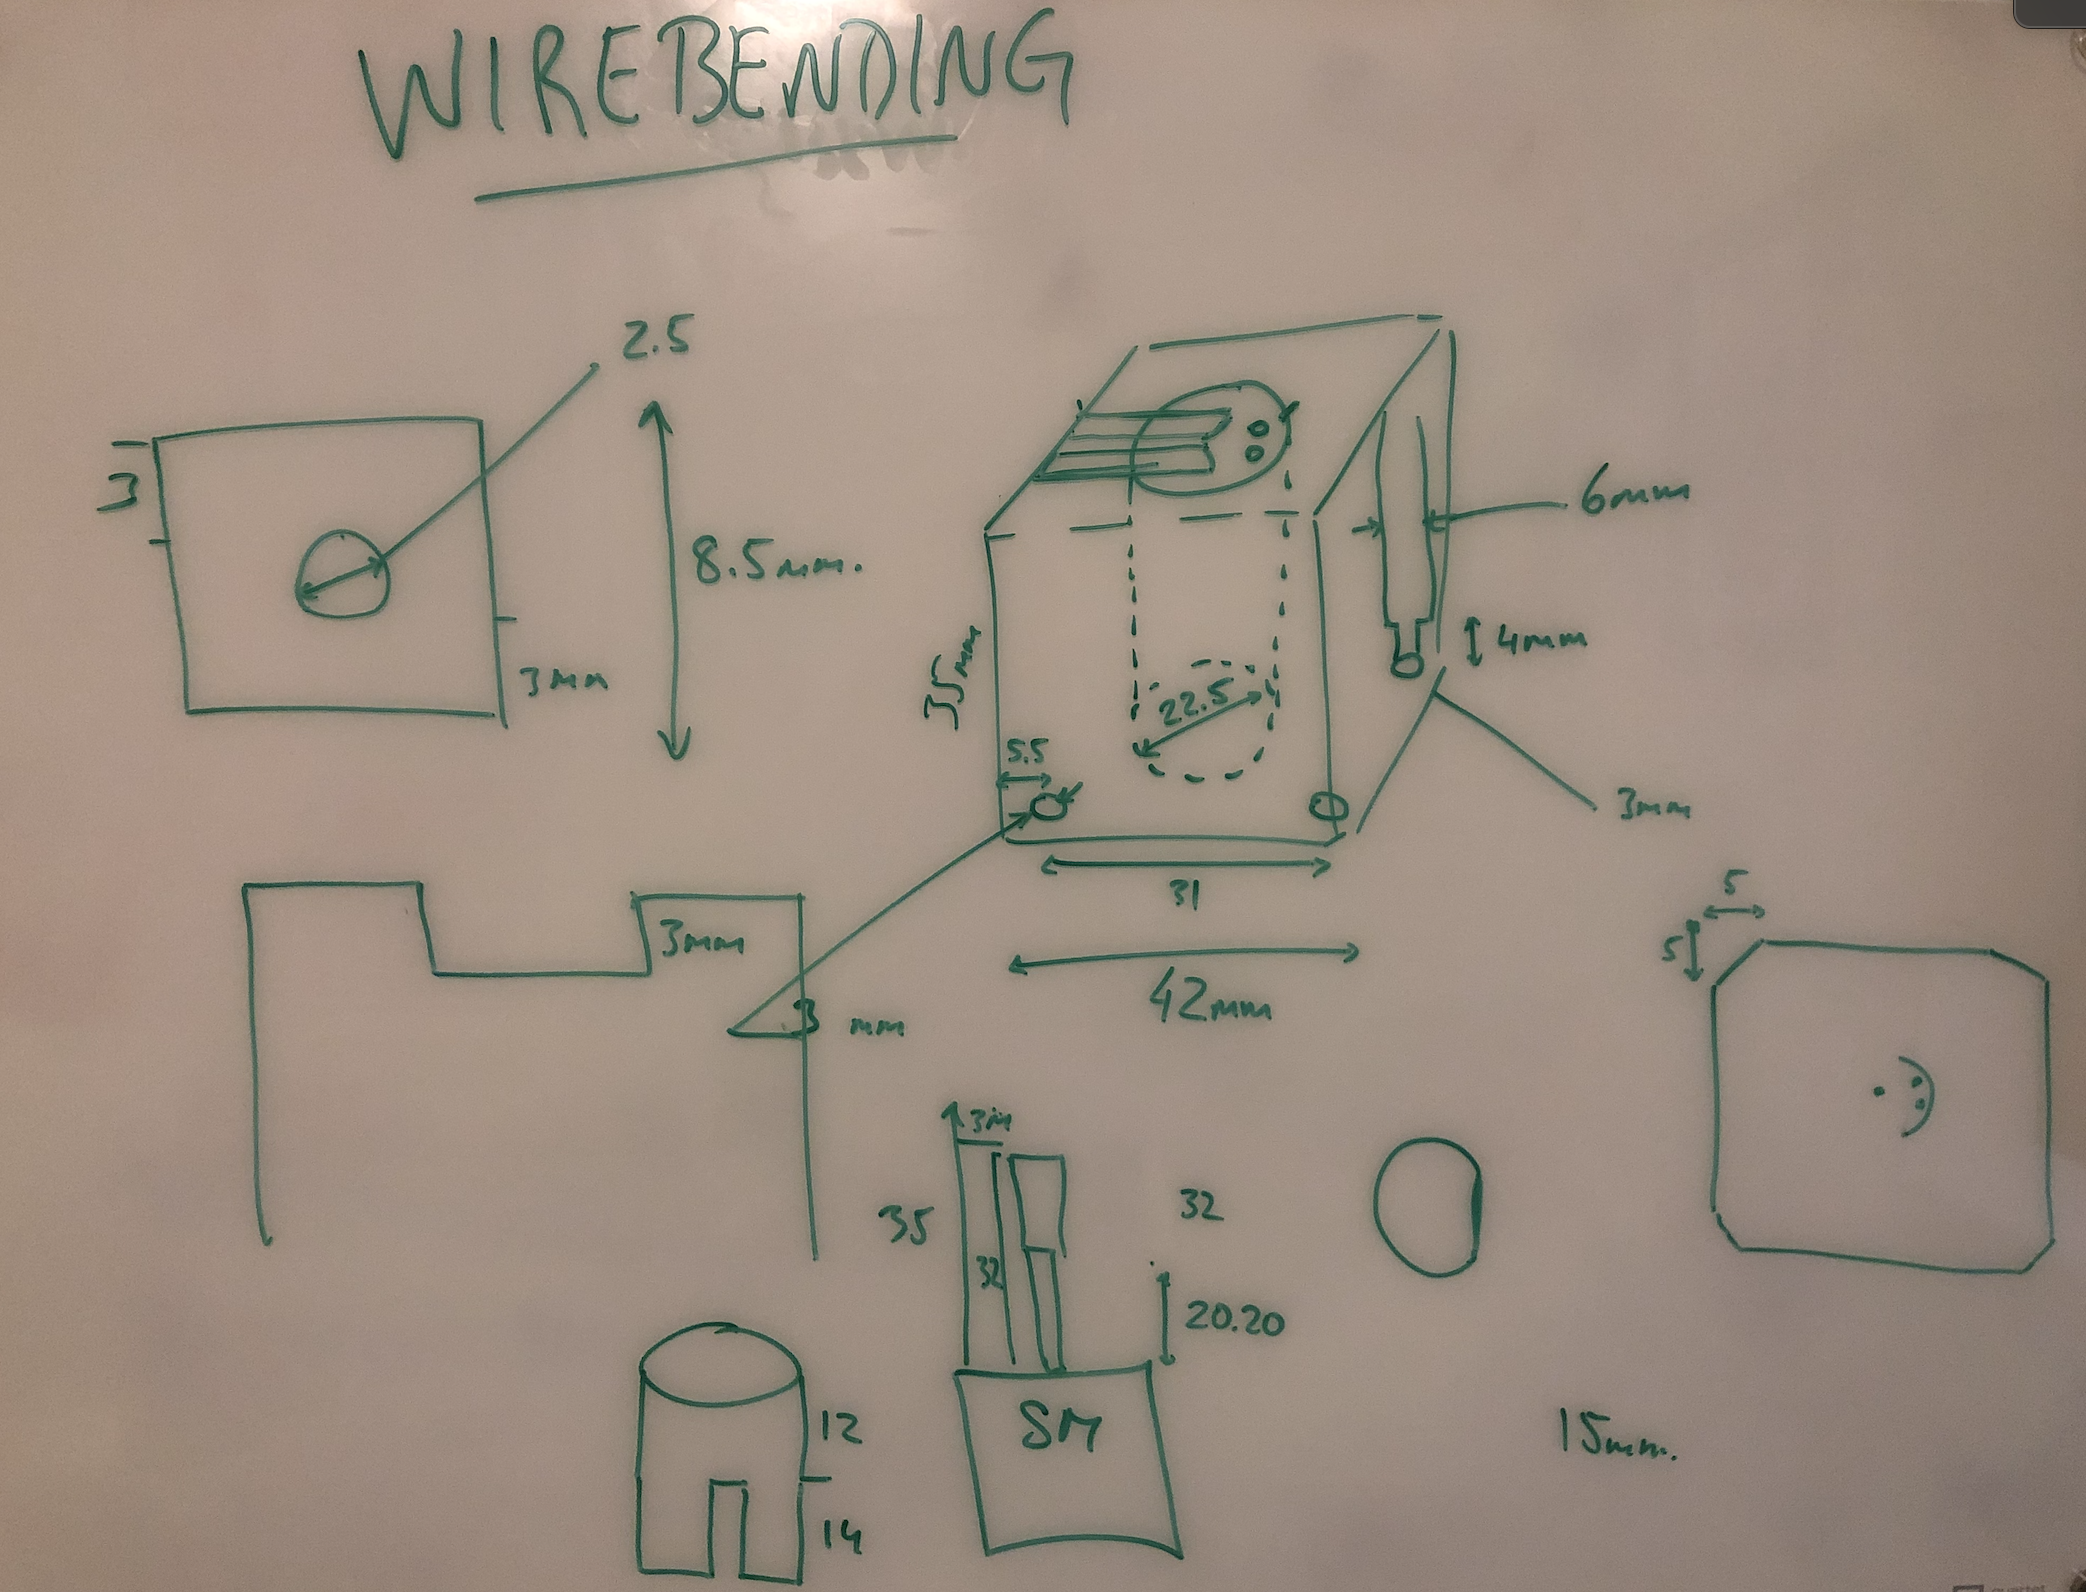 WIREBENDING
2.5
3
8.5mm.
3mm
6mm
4mm
35mm
22.5
5.5
3mm
31
42mm
3mm
3 mm
5
5
3m
35
32
32
20.20
SM
12
14
15mm.